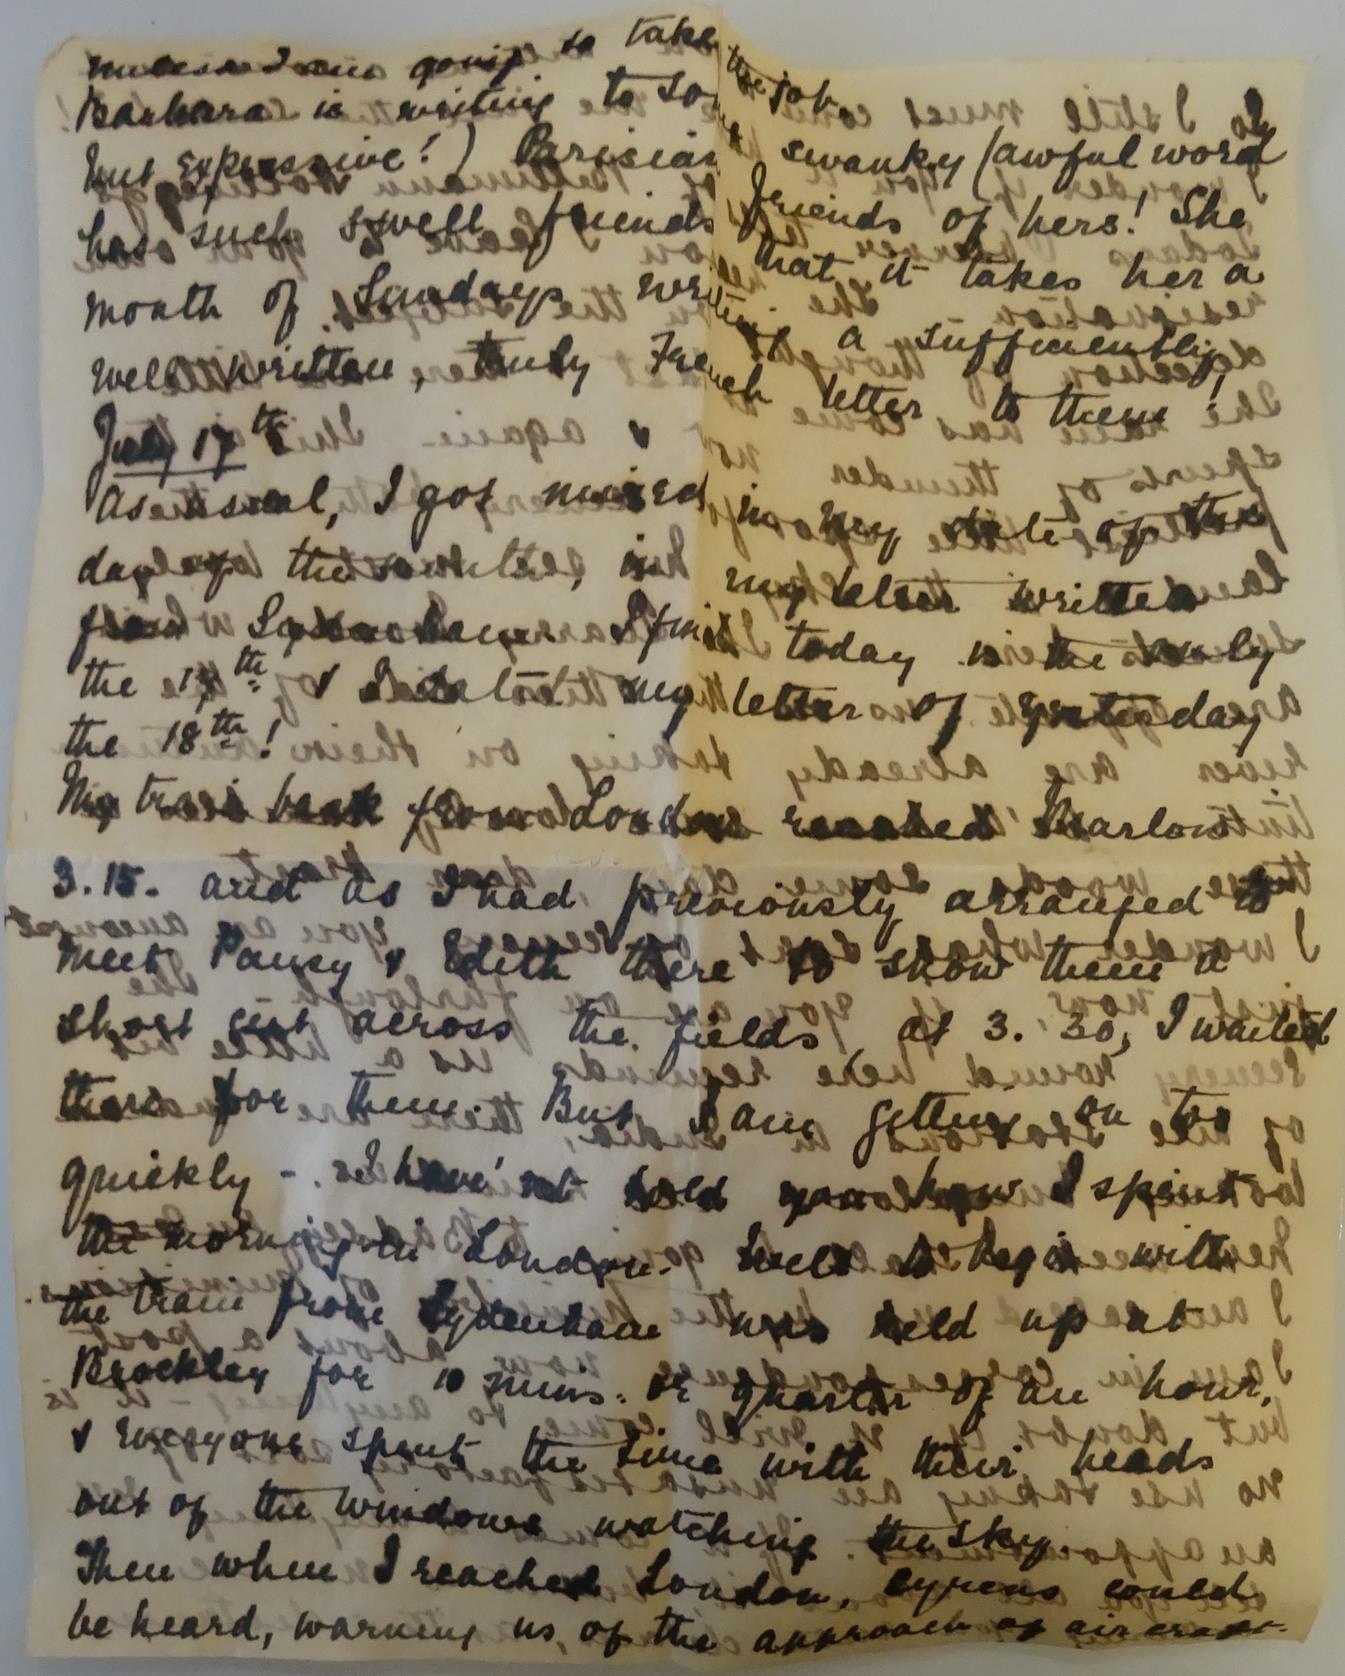 unless I am going to take the job.
Barbara is writing to some swanky (awful word
but expressive!) Parisian friends of hers! She
has such swell friends that it takes her a
month of Sundays writing a sufficiently
well written, truly French letter to them!
July 17th
As usual, I got mixed in my date of the
day of the month, in my letter written
from Sydenham. I find today is the only
the 17th & I dated my letter of yesterday
the 18th!
My train back from London reached Marlow
3.15. and as I had previously arranged to
meet Pansy & Edith there to show them a
short cut across the fields at 3.30, I waited
there for them. But I am getting on too
quickly -. I have'nt told you how I spent
the morning in London. Well to begin with
the train from Sydenham was held up at
Brockley for 10 mins. or quarter of an hour,
& everyone spent the time with their heads
out of the windows watching the sky.
Then when I reached London, syrens could
be heard, warning us of the approach of air craft